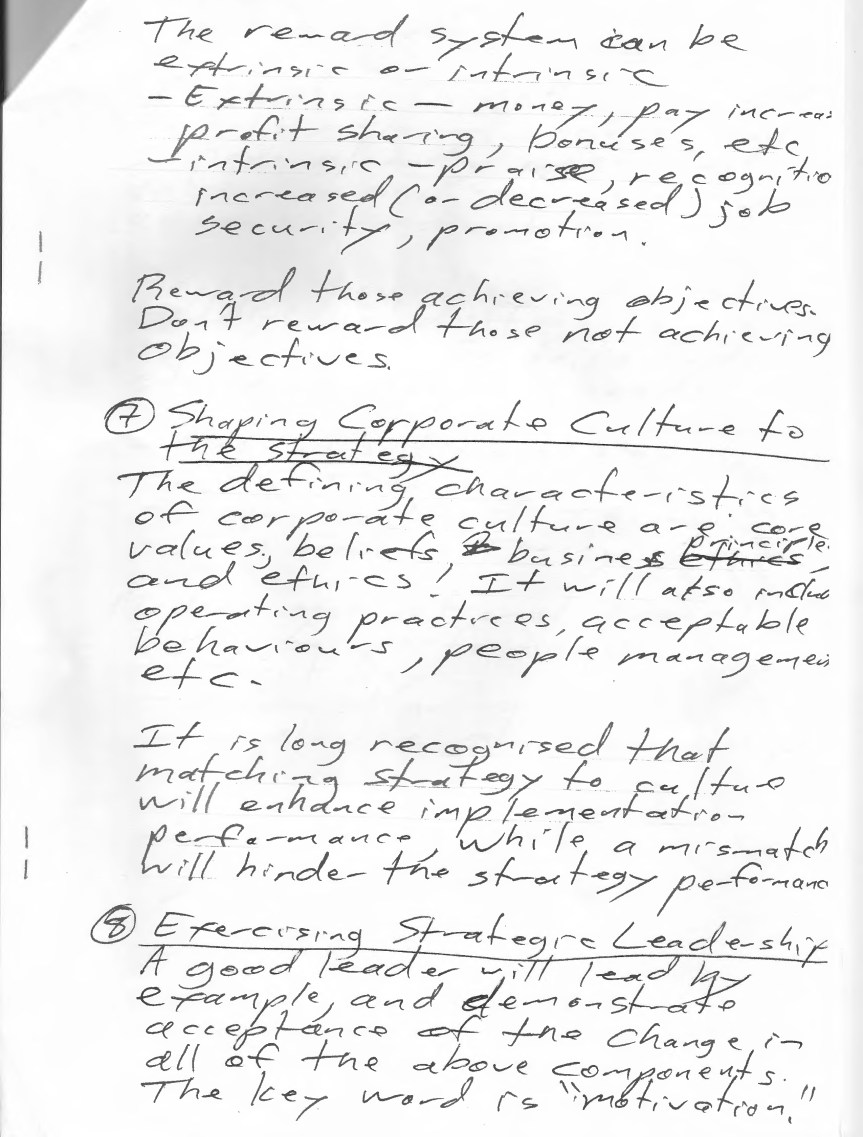 The reward system can be
extrinsic or intrinsic
- Extrinsic - money, pay increas
profit sharing, bonuses, etc
- intrinsic - praise, recognitio
increased (or decreased) job
security, promotion.
Reward those achieving objectives.
Don't reward those not achieving
objectives.
⑦ Shaping Corporate Culture to
the strategy
The defining characteristics
of corporate culture are: core
values, beliefs, business ethics principle
and ethics! It will also includ
operating practices, acceptable
behaviours, people managemen
etc.
It is long recognised that
matching strategy to culture
will enhance implementation
performance, while a mismatch
will hinder the strategy performanc
⑧ Exercising Strategic Leadership
A good leader will lead by
example, and demonstrate
acceptance of the change in
all of the above components.
The key word is "motivation."